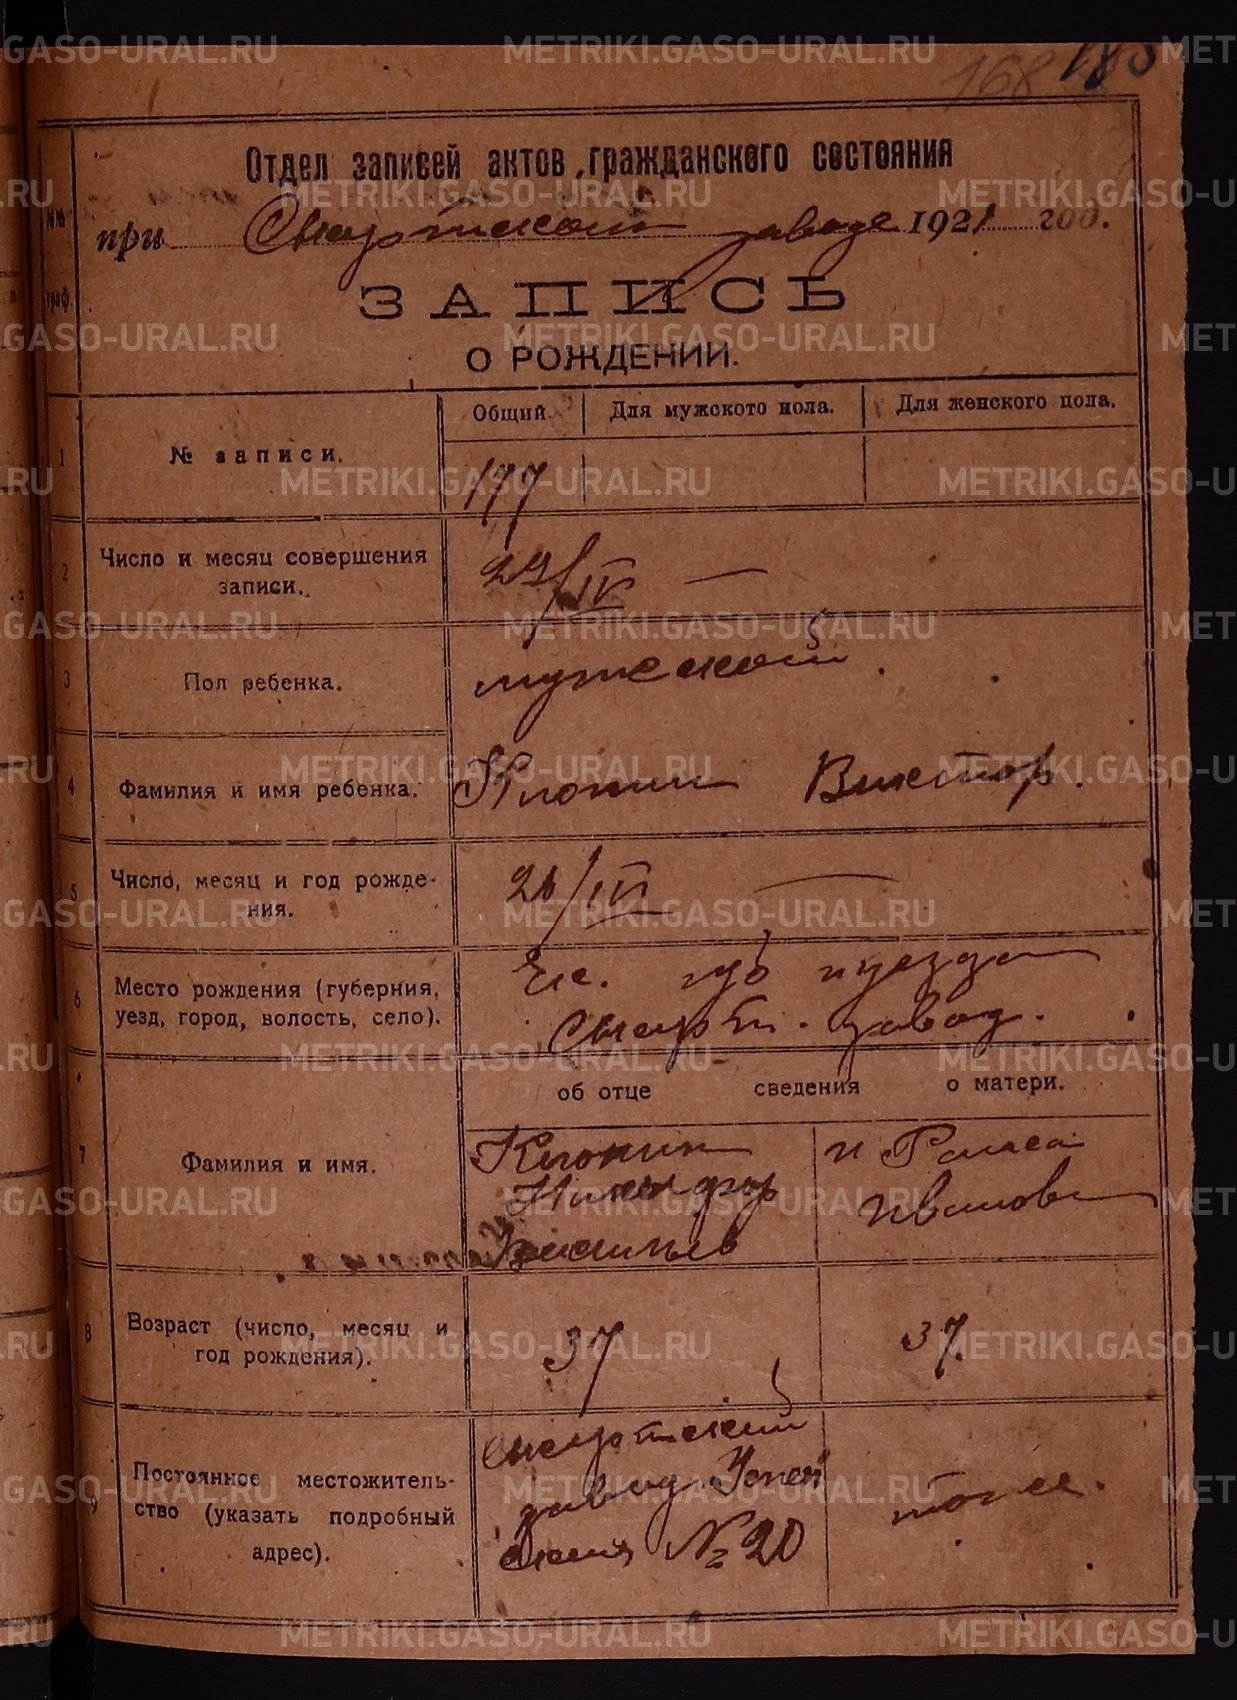 168 183
Отдел записей актов гражданского состояния
при Сысертском заводе 1921 году.
ЗАПИСЬ
О РОЖДЕНИИ.
№№ граф.
Общий. Для мужского пола. Для женского пола.
1 № записи. 177
2 Число и месяц совершения
записи. 29/IV —
3 Пол ребенка. мужской.
4 Фамилия и имя ребенка. Клопин Виктор.
5 Число, месяц и год рожде-
ния. 26/IV —
6 Место рождения (губерния,
уезд, город, волость, село).
Ек. губ и уезда
Сысерт. завод.
об отце сведения о матери.
7 Фамилия и имя.
и Раиса
Никифор Иванова
Васильев
8 Возраст (число, месяц и
год рождения).
37 37.
9 Постоянное местожитель-
ство (указать подробный
адрес).
Сысертский
завод Успен
ская № 20
тоже.
METRIKI.GASO-URAL.RU